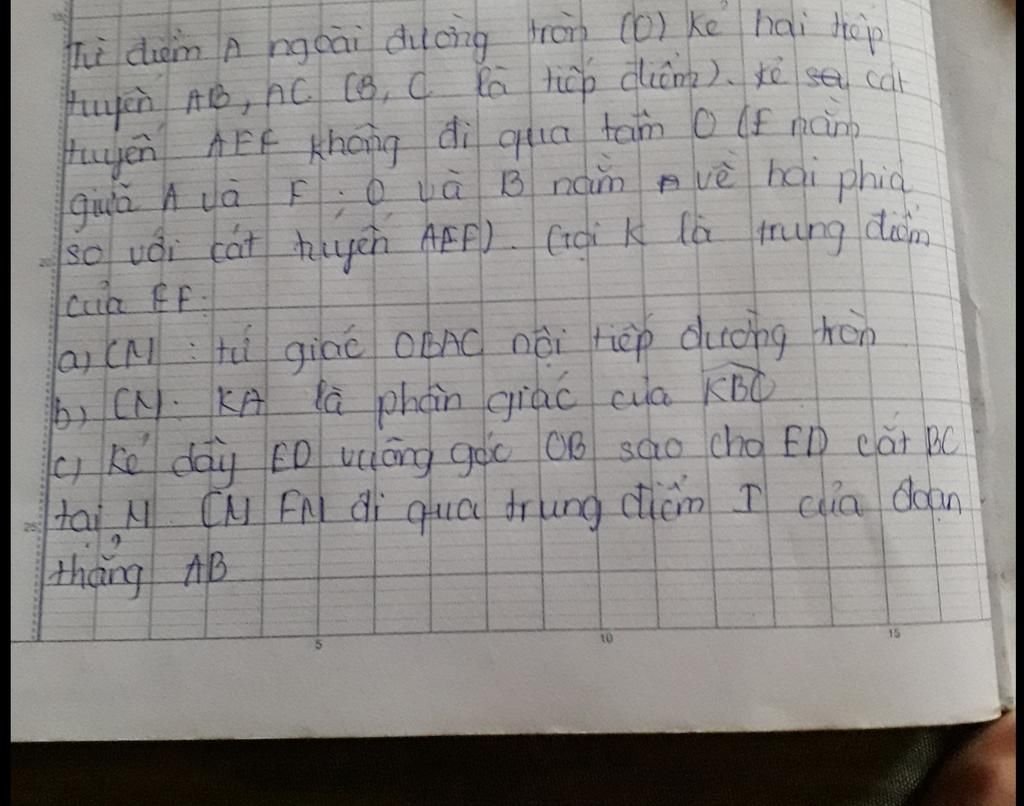 Từ điểm A ngoài đường tròn (O) kẻ hai tiếp
tuyến AB, AC (B, C là tiếp điểm). Kẻ cát
tuyến AEF không đi qua tâm O (E nằm
giữa A và F; O và B nằm về hai phía
so với cát tuyến AEF). Gọi K là trung điểm
của EF.
a) CM: tứ giác OBAC nội tiếp đường tròn
b) CM: KA là phân giác của KBC
c) Kẻ dây ED vuông góc OB sao cho ED cắt BC
tại M. CM FM đi qua trung điểm I của đoạn
thẳng AB
5 10 15